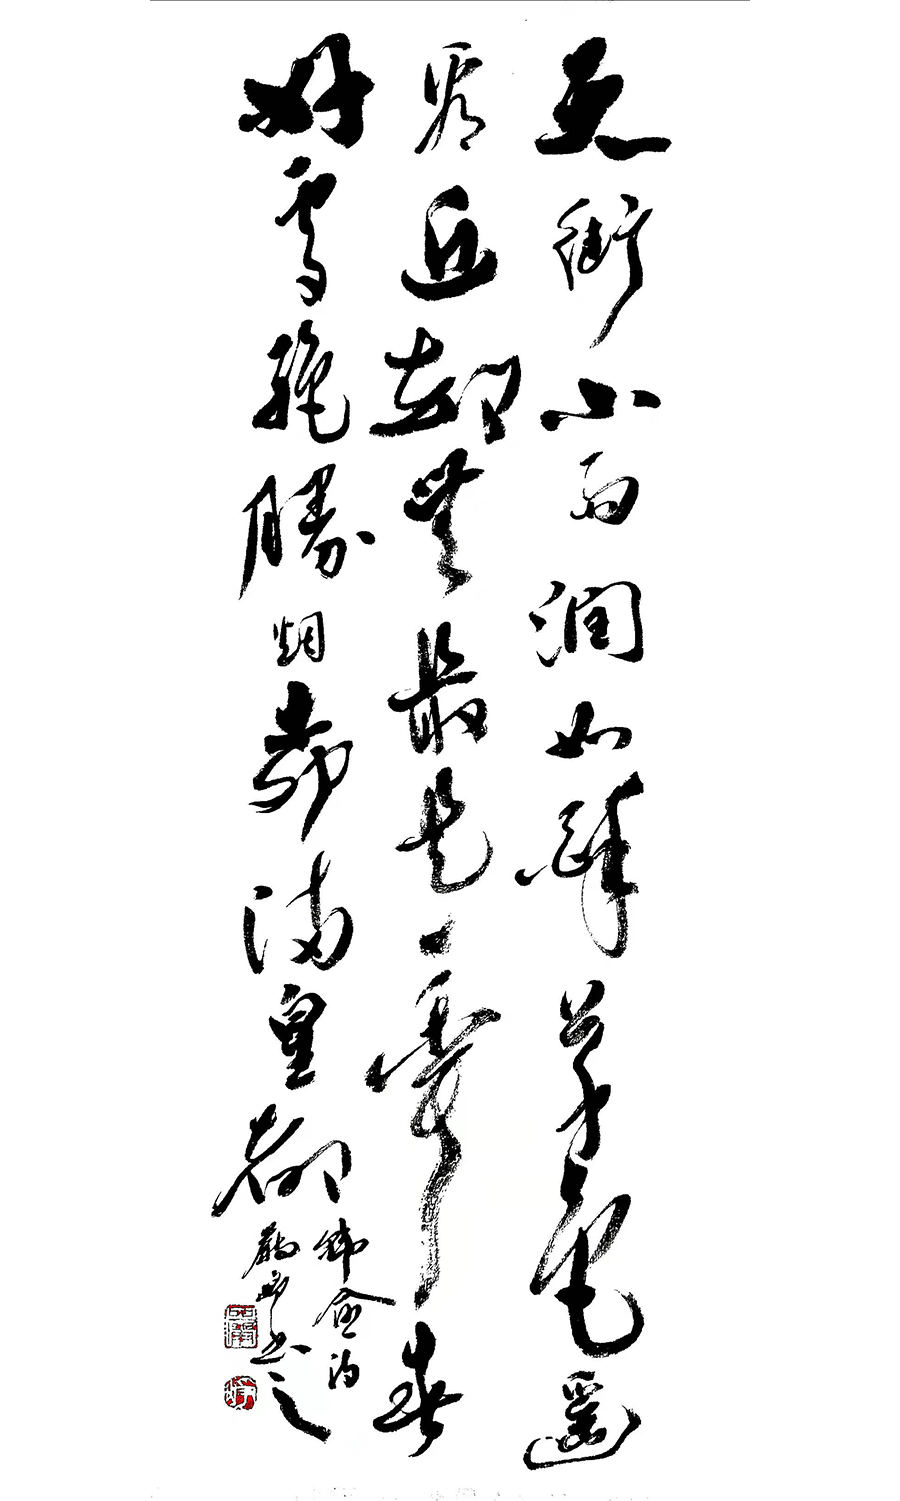 天街小雨润如酥草色遥
看近却無最是一年春
好處絶勝烟柳满皇都
韩愈诗
书之